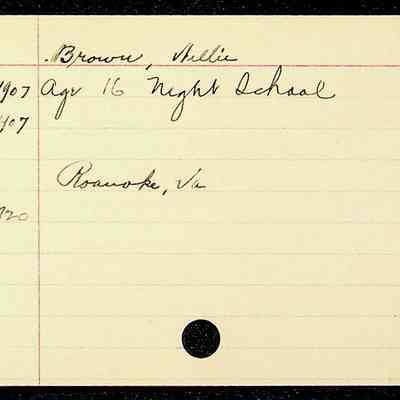 Brown, Nellie
1907 Age 16 Night School
1907
Roanoke, Va
720